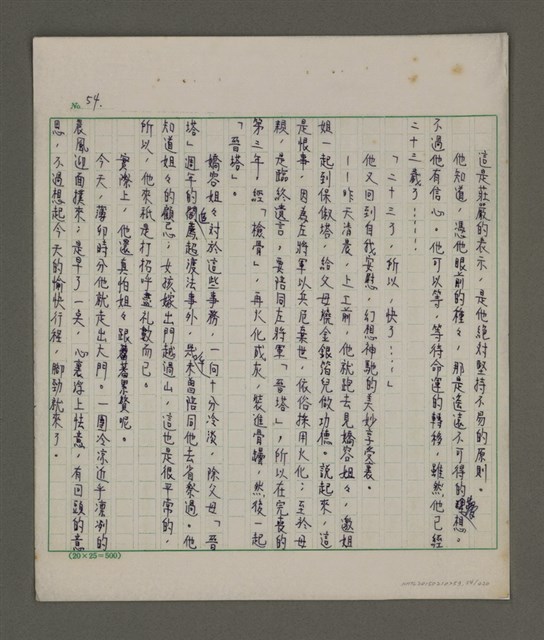 No. 54.
這是莊嚴的表示，是他絕對堅持不易的原則。
他知道，憑他眼前的種々，那是遙遠不可得的夢想。
不過他有信心。他可以等，等待命運的轉移，雖然他已經
二十三歲了⋯⋯
「二十三了，所以，快了⋯⋯」
他又回到自我安慰，幻想神馳的美妙享受裏。
——昨天清晨，上工前，他就跑去見嬌容姐々，邀姐
姐一起到保俶塔，給父母燒金銀箔兒做功德。說起來，這
是恨事，因為左將軍以兵厄棄世，依俗採用火化；至於母
親，是臨終遺言，要陪同左將軍「晉塔」，所以在完喪的
第三年，經「檢骨」，再火化成灰，裝進骨罈，然後一起
「晉塔」。
嬌容姐々對於這些事務，一向十分冷淡，除父母「晉
塔」週年的追薦超渡法事外，是未曾陪同他去省祭過。他
知道姐々的顧忌；女孩嫁出門越過山，這也是很平常的，
所以，他來祇是打招呼盡礼數而已。
實際上，他還真怕姐々跟著累贅呢。
今天，薄卯時分他就走出大門。一團冷凉近乎凜冽的
晨風迎面撲來；是早了一矣，心裏浮上怯意，有回頭的意
思，不過想起今天的愉快行程，腳勁就來了。
(20×25=500)